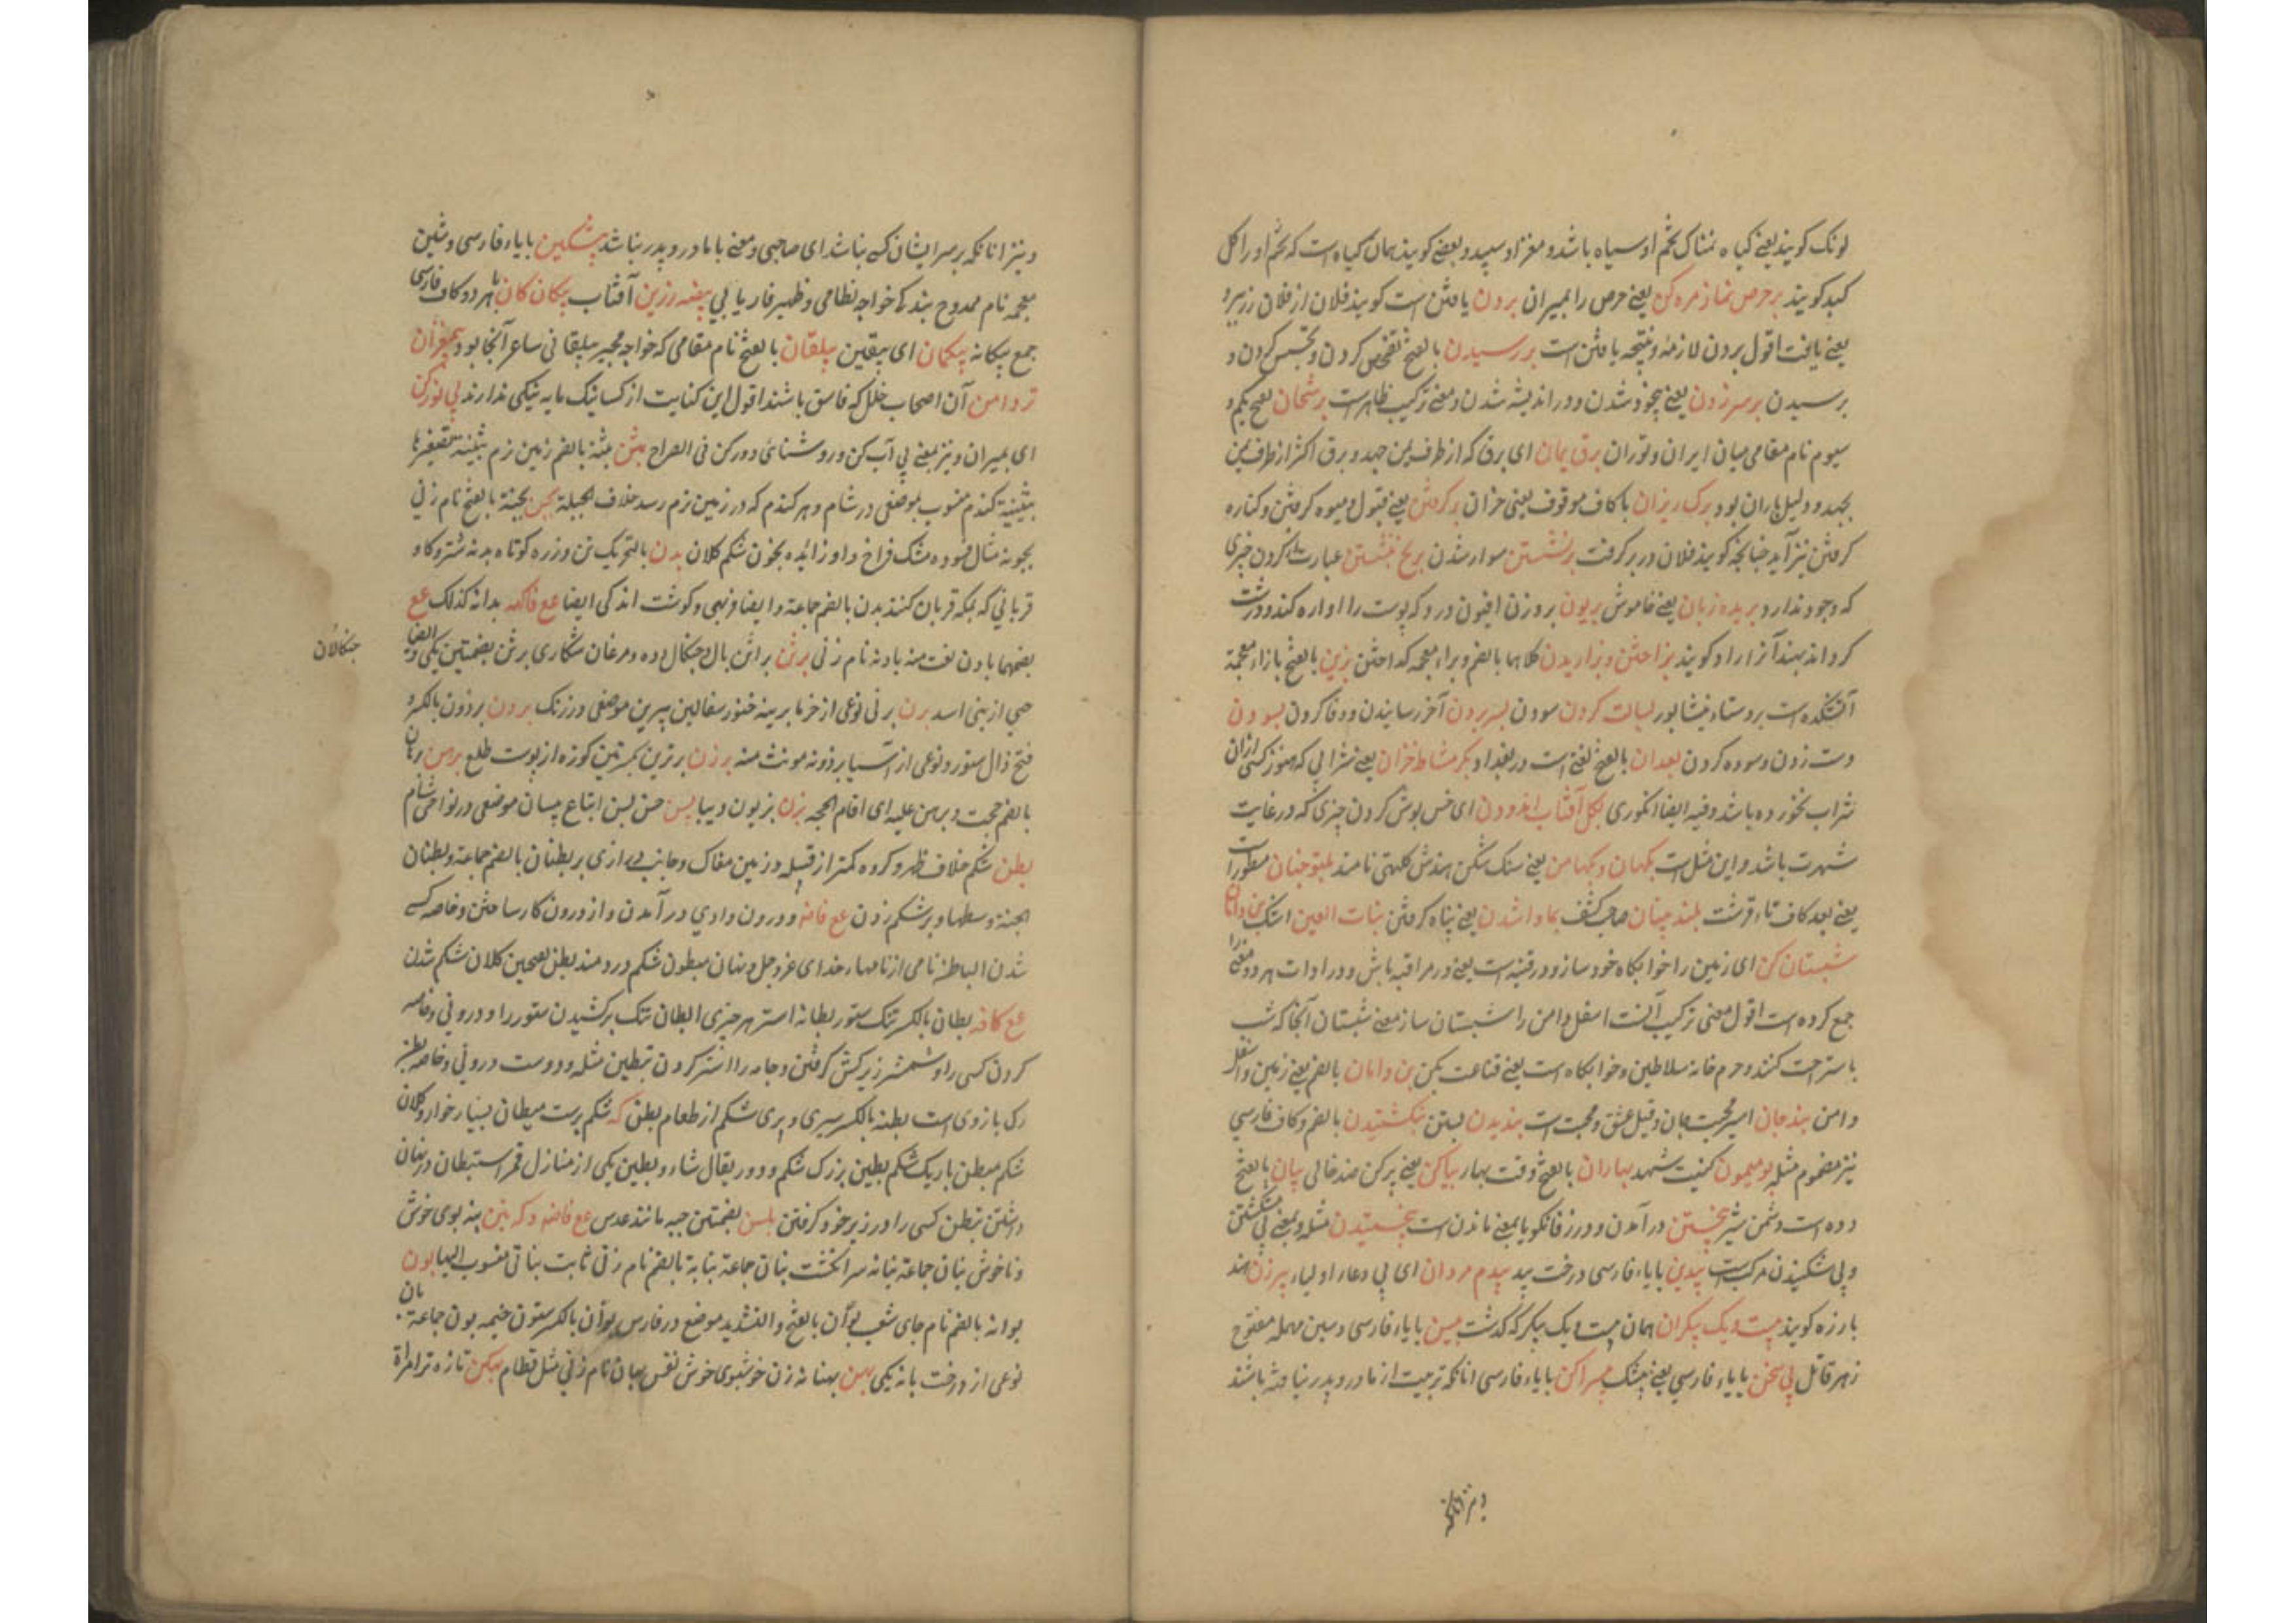 لونک کویند یعنی کیاه نمناک تخم او سیاه باشد و مغز او سپید و بعضی کویند همان کیاه است که تخم او را کل
کویند بر حرص نماز مرده کن یعنی حرص را بمیران بردن یافتن است کویند فلان از فلان زر برد
یعنی یافت اقول بردن لازمه و نتیجه یافتن است بررسیدن بالفتح تفحص کردن و تجسس کردن و
برسیدن بر سر زدن یعنی بیخود شدن و در اندیشه شدن و معنی ترکیب ظاهر است برسخان بفتح یکم و
سیوم نام مقامی میان ایران و توران برق یمان ای برق که از طرف یمن جهد و برق اکثر از طرف یمن
بجهد و دلیل باران بود برک ریزان با کاف موقوف یعنی خزان بر کرفتن یعنی قبول و میوه کرفتن و کناره
کرفتن نیز آید چنانچه کویند فلان در بر کرفت برنشستن سوار شدن بریخ نبشتن عبارت از کردن چیزی
که وجود ندارد بریده زبان یعنی خاموش بریون بر وزن افیون درد که پوست را آواره کند و درشت
کرداند بهند آنرا داد کویند بزاختن و بزاریدن کلاهما بالضم و براء معجمه کداختن بزین بالفتح بازاء معجمة
آتشکده است بروستاء نیشابور بسالت کردن سودن بسر بردن آخر رسانیدن و وفا کردن بسودن
دست زدن و سوده کردن بغدان بالفتح لغتی است در بغداد بکر مشاطه خزان یعنی شرابی که هنوز کسی ازان
شراب نخورده باشد و فیه ایضا انکوری بکل آفتاب اندودن ای خس پوش کردن چیزی که در غایت
شهرت باشد و این مثل است بکهان و بکهامن یعنی سنک شکن هندش کلهتی نامند بلبو جنان مطورا
یعنی بعد کاف تاء قرشت بلند بینان صاحب کشف بماوا شدن یعنی پناه کرفتن بنات العین اشک بن دامان
شبستان کن ای زمین را خوابکاه خود ساز و در قنیه است یعنی در مراقبه باش و در ادات هر دو معنی را
جمع کرده است اقول معنی ترکیب آنست اسفل دامن را شبستان ساز معنی شبستان آنجا که شب
باستراحت کنند و حرم خانه سلاطین و خوابکاه است یعنی قناعت بکن بن دامان بالضم یعنی زمین و اسفل
دامن بند جان اسیر محبت جان و قیل عشق و محبت است بندیدن بستن بنکشتیدن بالضم و کاف فارسی
نیز مضموم مثله بومیمون کنیت شهد بهاران بالفتح وقت بهار بیاکن یعنی پر کن ضد خالی بیان بالفتح
دده است دشمن شیر بیختن در آمدن و در زفانکویا بمعنی ماندن است بیخستیدن مثله و بمعنی بی شکستن
و بی شکیدن مرکب است بیدین بایاء فارسی درخت بید بیدم مردان ای بی دعاء اولیاء بیرزن هند
بارزه کویند بیست و یک پیکران همان بیست و یک پیکر که کذشت بیسن بایاء فارسی و سین مهمله مفتوح
زهر قاتل بی سخن بایاء فارسی یعنی بیشک بیسراکن بایاء فارسی انانکه تربیت از مادر و پدر نیافته باشند
و نیز انانکه
و نیز انانکه بر سر ایشان کسی نباشد ای صاحبی و معنی با مادر و پدر نباشد بیشکین بایاء فارسی و شین
معجمه نام ممدوح بندکی خواجه نظامی و ظهیر فاریابی بیضه زرین آفتاب بیکان کان با هر دو کاف فارسی
جمع بیکانه بیکمان ای بیقین بیلقان بالفتح نام مقامی که خواجه مجیر بیلقانی شاعر آنجا بود بیمغزان
تر دامن آن اصحاب خلل که فاسق باشند اقول این کنایت از کسانیکه مایه نیکی ندارند بی نور کن
ای بمیران و نیز بمعنی بی آب کن و روشنائی دور کن فی الصراح بثن بثنة بالضم زمین نرم بثینة تصغیرها
بثنیة کندم منسوب بموضعی در شام و هر کندم که در زمین نرم رسد خلاف الجبلة بجن بجنة بالفتح نام زنی
بجونه مثال فعوده مشک فراخ و او زائده بخون شکم کلان بدن بالتحریک تن و زره کوتاه بدنه شتر و کاو
قربانی که بمکه قربان کنند بدن بالضم جماعة و ایضا فربهی و کوشت اندکی ایضا عع فاکهه بدانه کذلک عع
بضمهما بادن نعت منه بادنه نام زنی برثن براثن بال و چنکال دده و مرغان شکاری برثن بضمتین یکی و ایضا
جنکالان
حی از بنی اسد برن برنی نوعی از خرما برینه خنور سفالین یبرین موضعی در زنک بردن برذون بالکسر و
فتح ذال ستور و نوعی از اسپ برذونه مونث منه برزن برزین بکسرتین کوزه از پوست طلع برهن برهان
بالضم حجت و برهن علیه ای اقام الحجه بزن بزیون دیبا بسن حسن بسن اتباع بیسان موضعی در نواحی شام
بطن شکم خلاف ظهر و کروه کمتر از قبیله و زمین مغاک و جانب درازی پر بطنان بالضم جماعة و بطنان
الجنة وسطها و بر شکم زدن عع فاضه و درون وادی درآمدن و از درون کار ساختن و خاصه کسی
شدن الباطن نامی از نامهاء خدای عز و جل و نهان مبطون شکم درد مند بطن بفتحین کلان شکم شدن
عع کافه بطان بالکسر تنک ستور بطانه استر هر چیزی ابطان تنک برکشیدن ستور را و درونی و خاصه
کردن کسی را و شمشیر زیر کش کرفتن و جامه را استر کردن تبطین مثله و دوست درونی و خاصه بطن
رکی بازوی است بطنه بالکسر سیری و پری شکم از طعام بطن که شکم پرست مبطان بسیار خوار و کلان
شکم مبطن باریک شکم بطین بزرک شکم و دور یقال شاء و بطین یکی از منازل قمر استبطان در نهان
داشتن تبطن کسی را در زیر خود کرفتن بلسن بضمتین حبه مانند عدس عع فاضه و که بنن بنه بوی خوش
و ناخوش بنان جماعة بنانه سر انکشت بنان جماعة بنابة بالضم نام زنی ثابت بنانی منسوب الیها بون
بوانه بالضم نام جای شعب بوان بالفتح و التشدید موضع در فارس بوان بالکسر ستون خیمه بون جماعة بان
نوعی از درخت بانه یکی بهن بهنانه زن خوشبوی خوش نفس بهان نام زنی مثل قطام بهکن تازه تر امراة